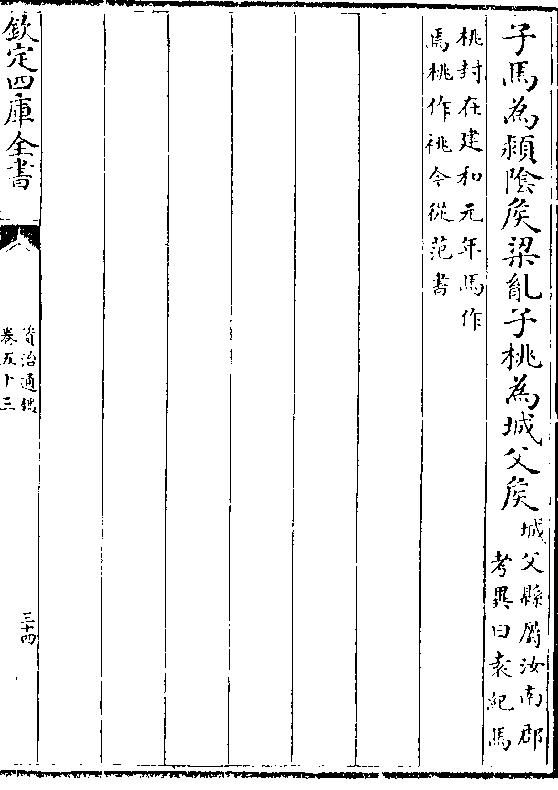 子馬為潁陰侯梁胤子桃為城父侯城父縣屬汝南郡考異曰袁紀馬
桃封在建和元年馬作馬桃作祧今從范書
欽定四庫全書
資治通鑑
卷五十三
三十四